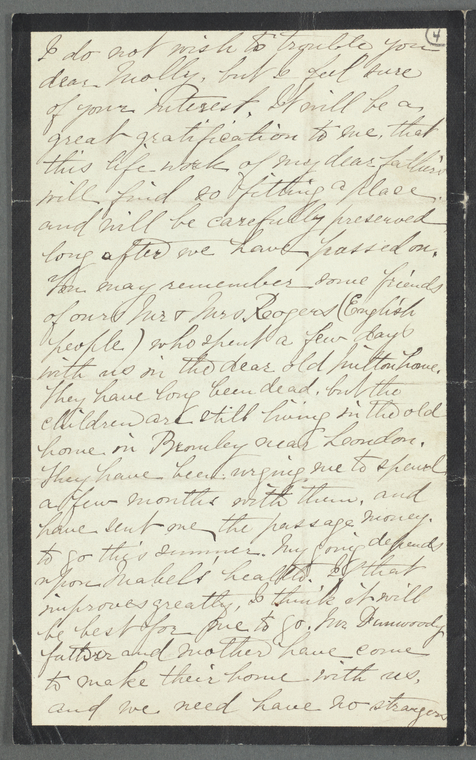 4
I do not wish to trouble you
dear Molly, but I feel sure
of your interest. It will be a
great gratification to me, that
this life-work of my dear father's
will find so fitting a place
and will be carefully preserved
long after we have passed on.
You may remember some friends
of ours Mr & Mrs Rogers (English
people) who spent a few days
with us in the dear old home.
They have long been dead, but the
children are still living in the old
home in Bromley near London.
They have been urging me to spend
a few months with them, and
have sent me the passage money.
to go this summer. My going depends
upon Mabel's health. If that
improves greatly, I think it will
be best for me to go. Mr Dunwoody
father and mother have come
to make their home with us,
and we need have no strangers